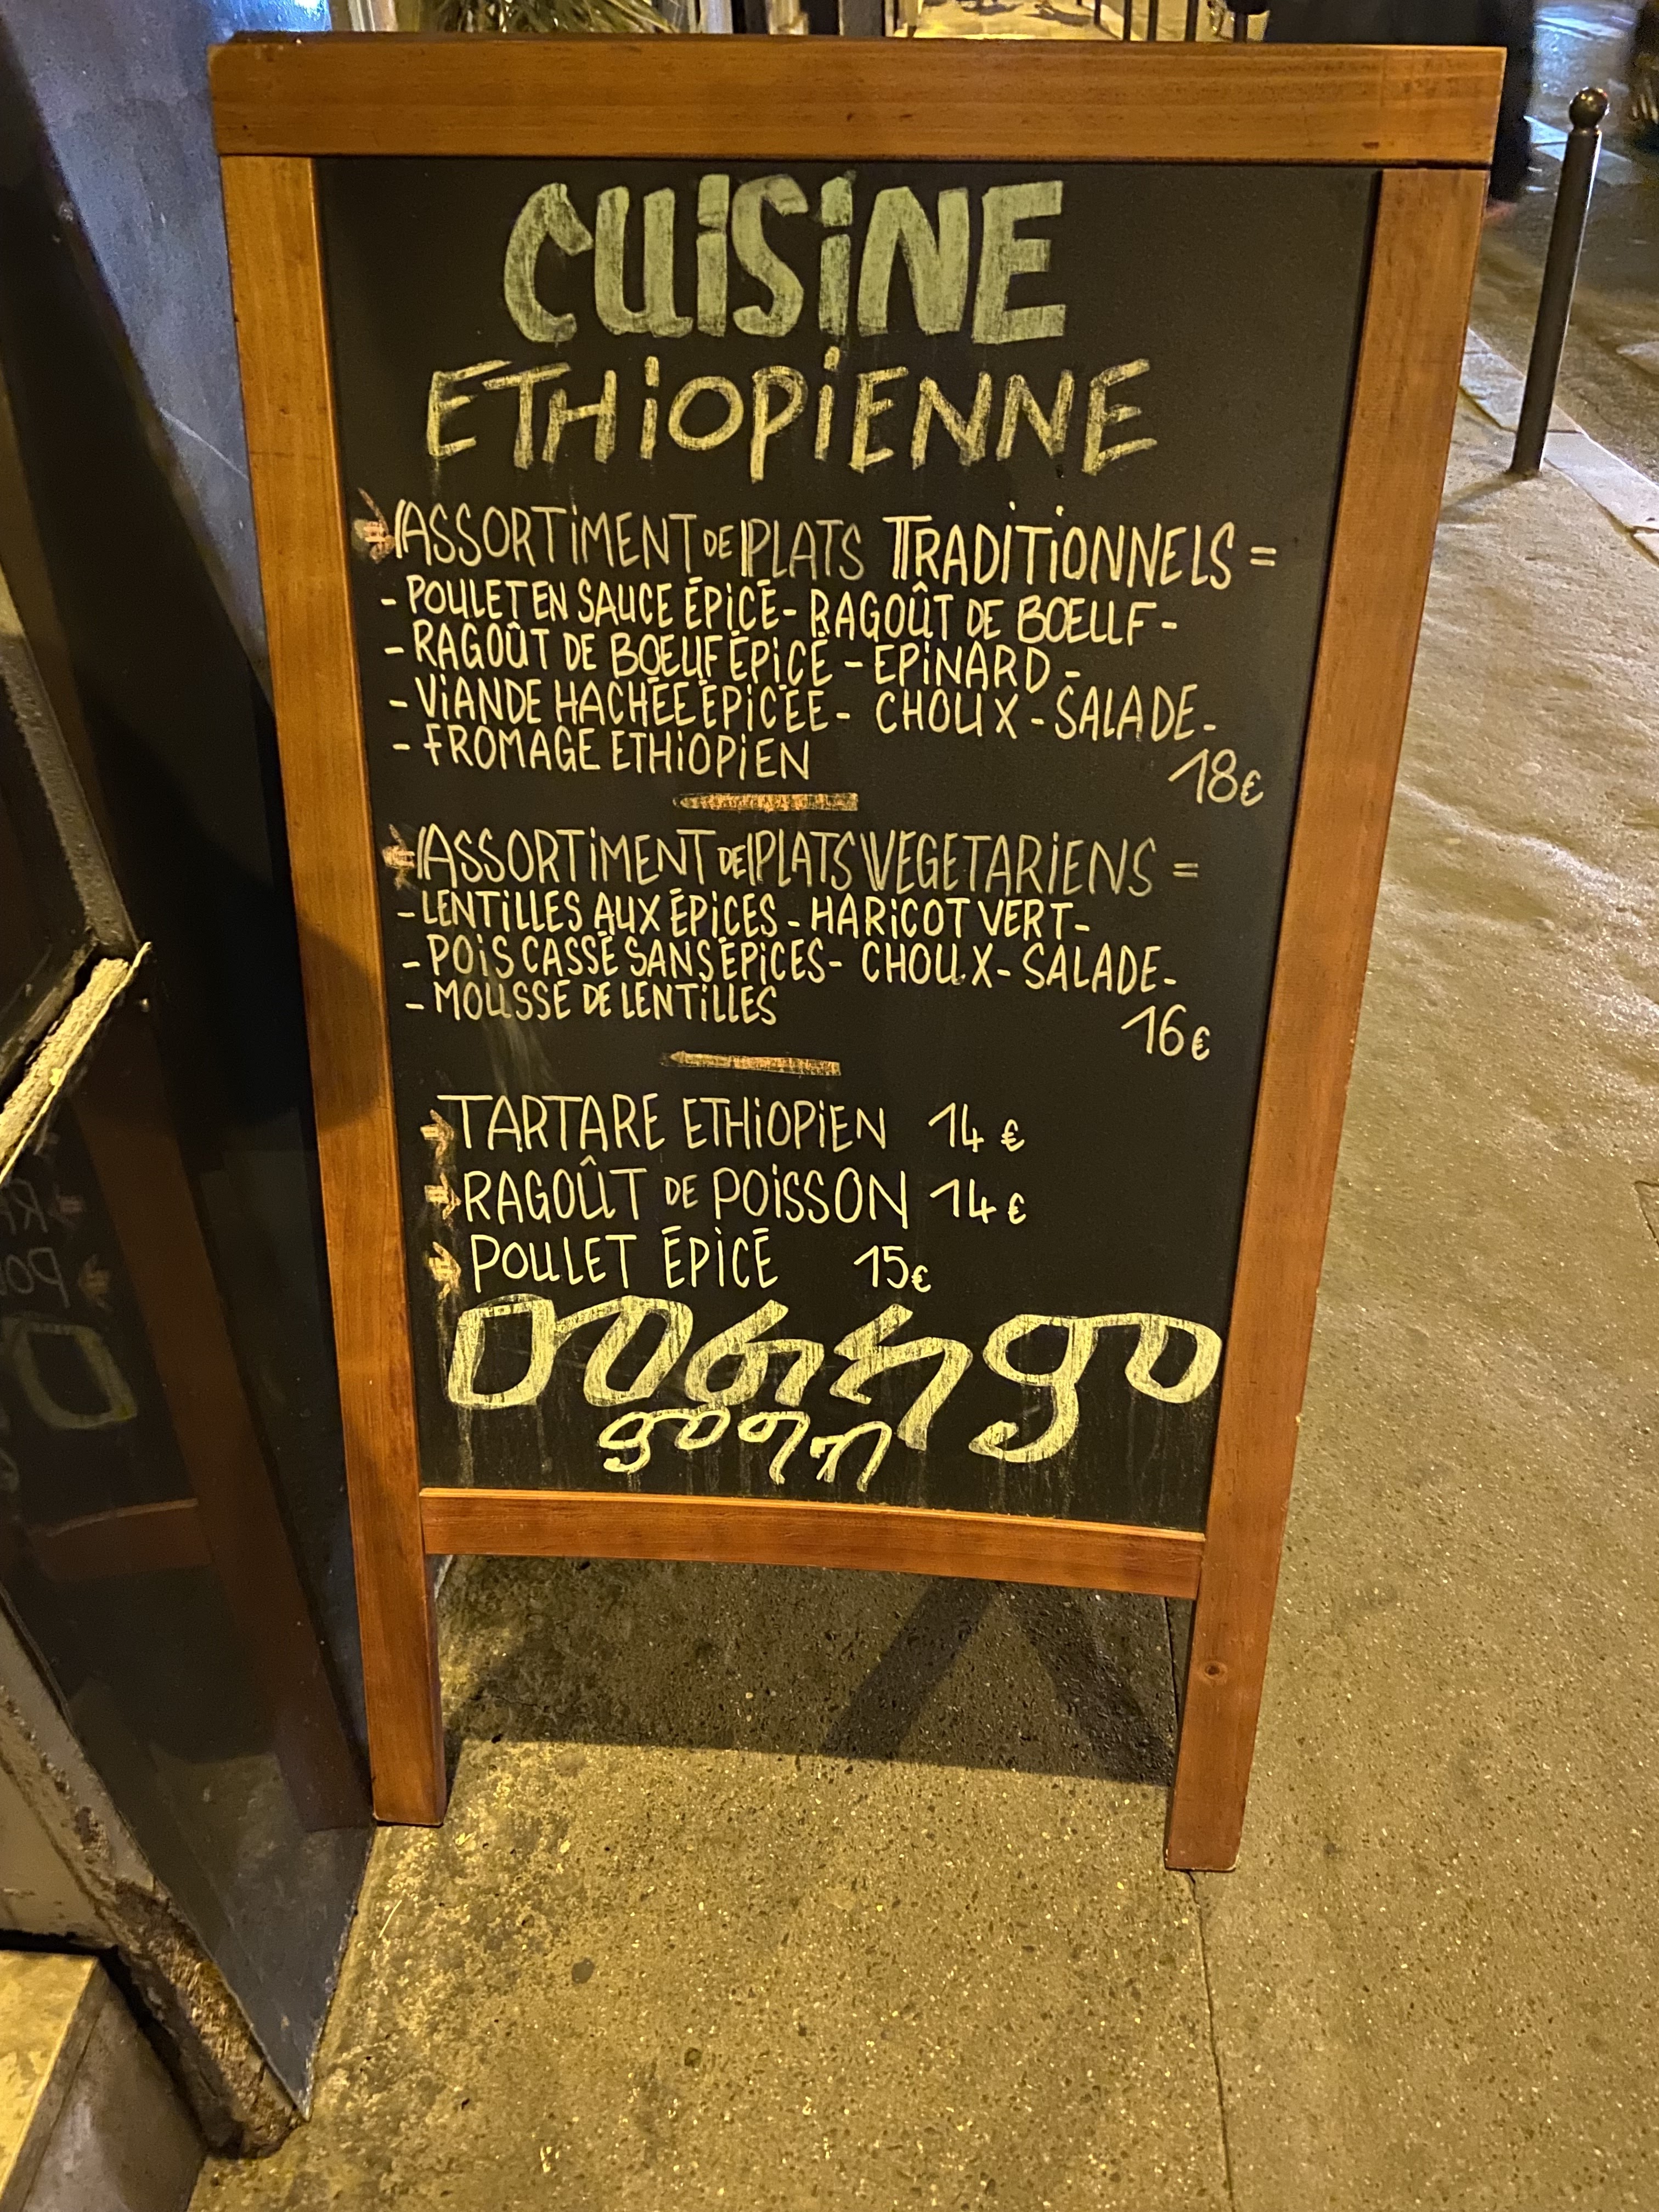 CUISINE
ETHIOPIENNE
ASSORTIMENT DE PLATS TRADITIONNELS =
- POULET EN SAUCE ÉPICÉ - RAGOÛT DE BOEUF -
- RAGOÛT DE BOEUF ÉPICÉ - EPINARD -
- VIANDE HACHÉE ÉPICÉE - CHOUX - SALADE -
- FROMAGE ETHIOPIEN
18€
ASSORTIMENT DE PLATS VEGETARIENS =
- LENTILLES AUX ÉPICES - HARICOT VERT -
- POIS CASSÉ SANS ÉPICES - CHOUX - SALADE -
- MOUSSE DE LENTILLES
16€
TARTARE ETHIOPIEN 14 €
RAGOÛT DE POISSON 14 €
POULET ÉPICÉ 15€